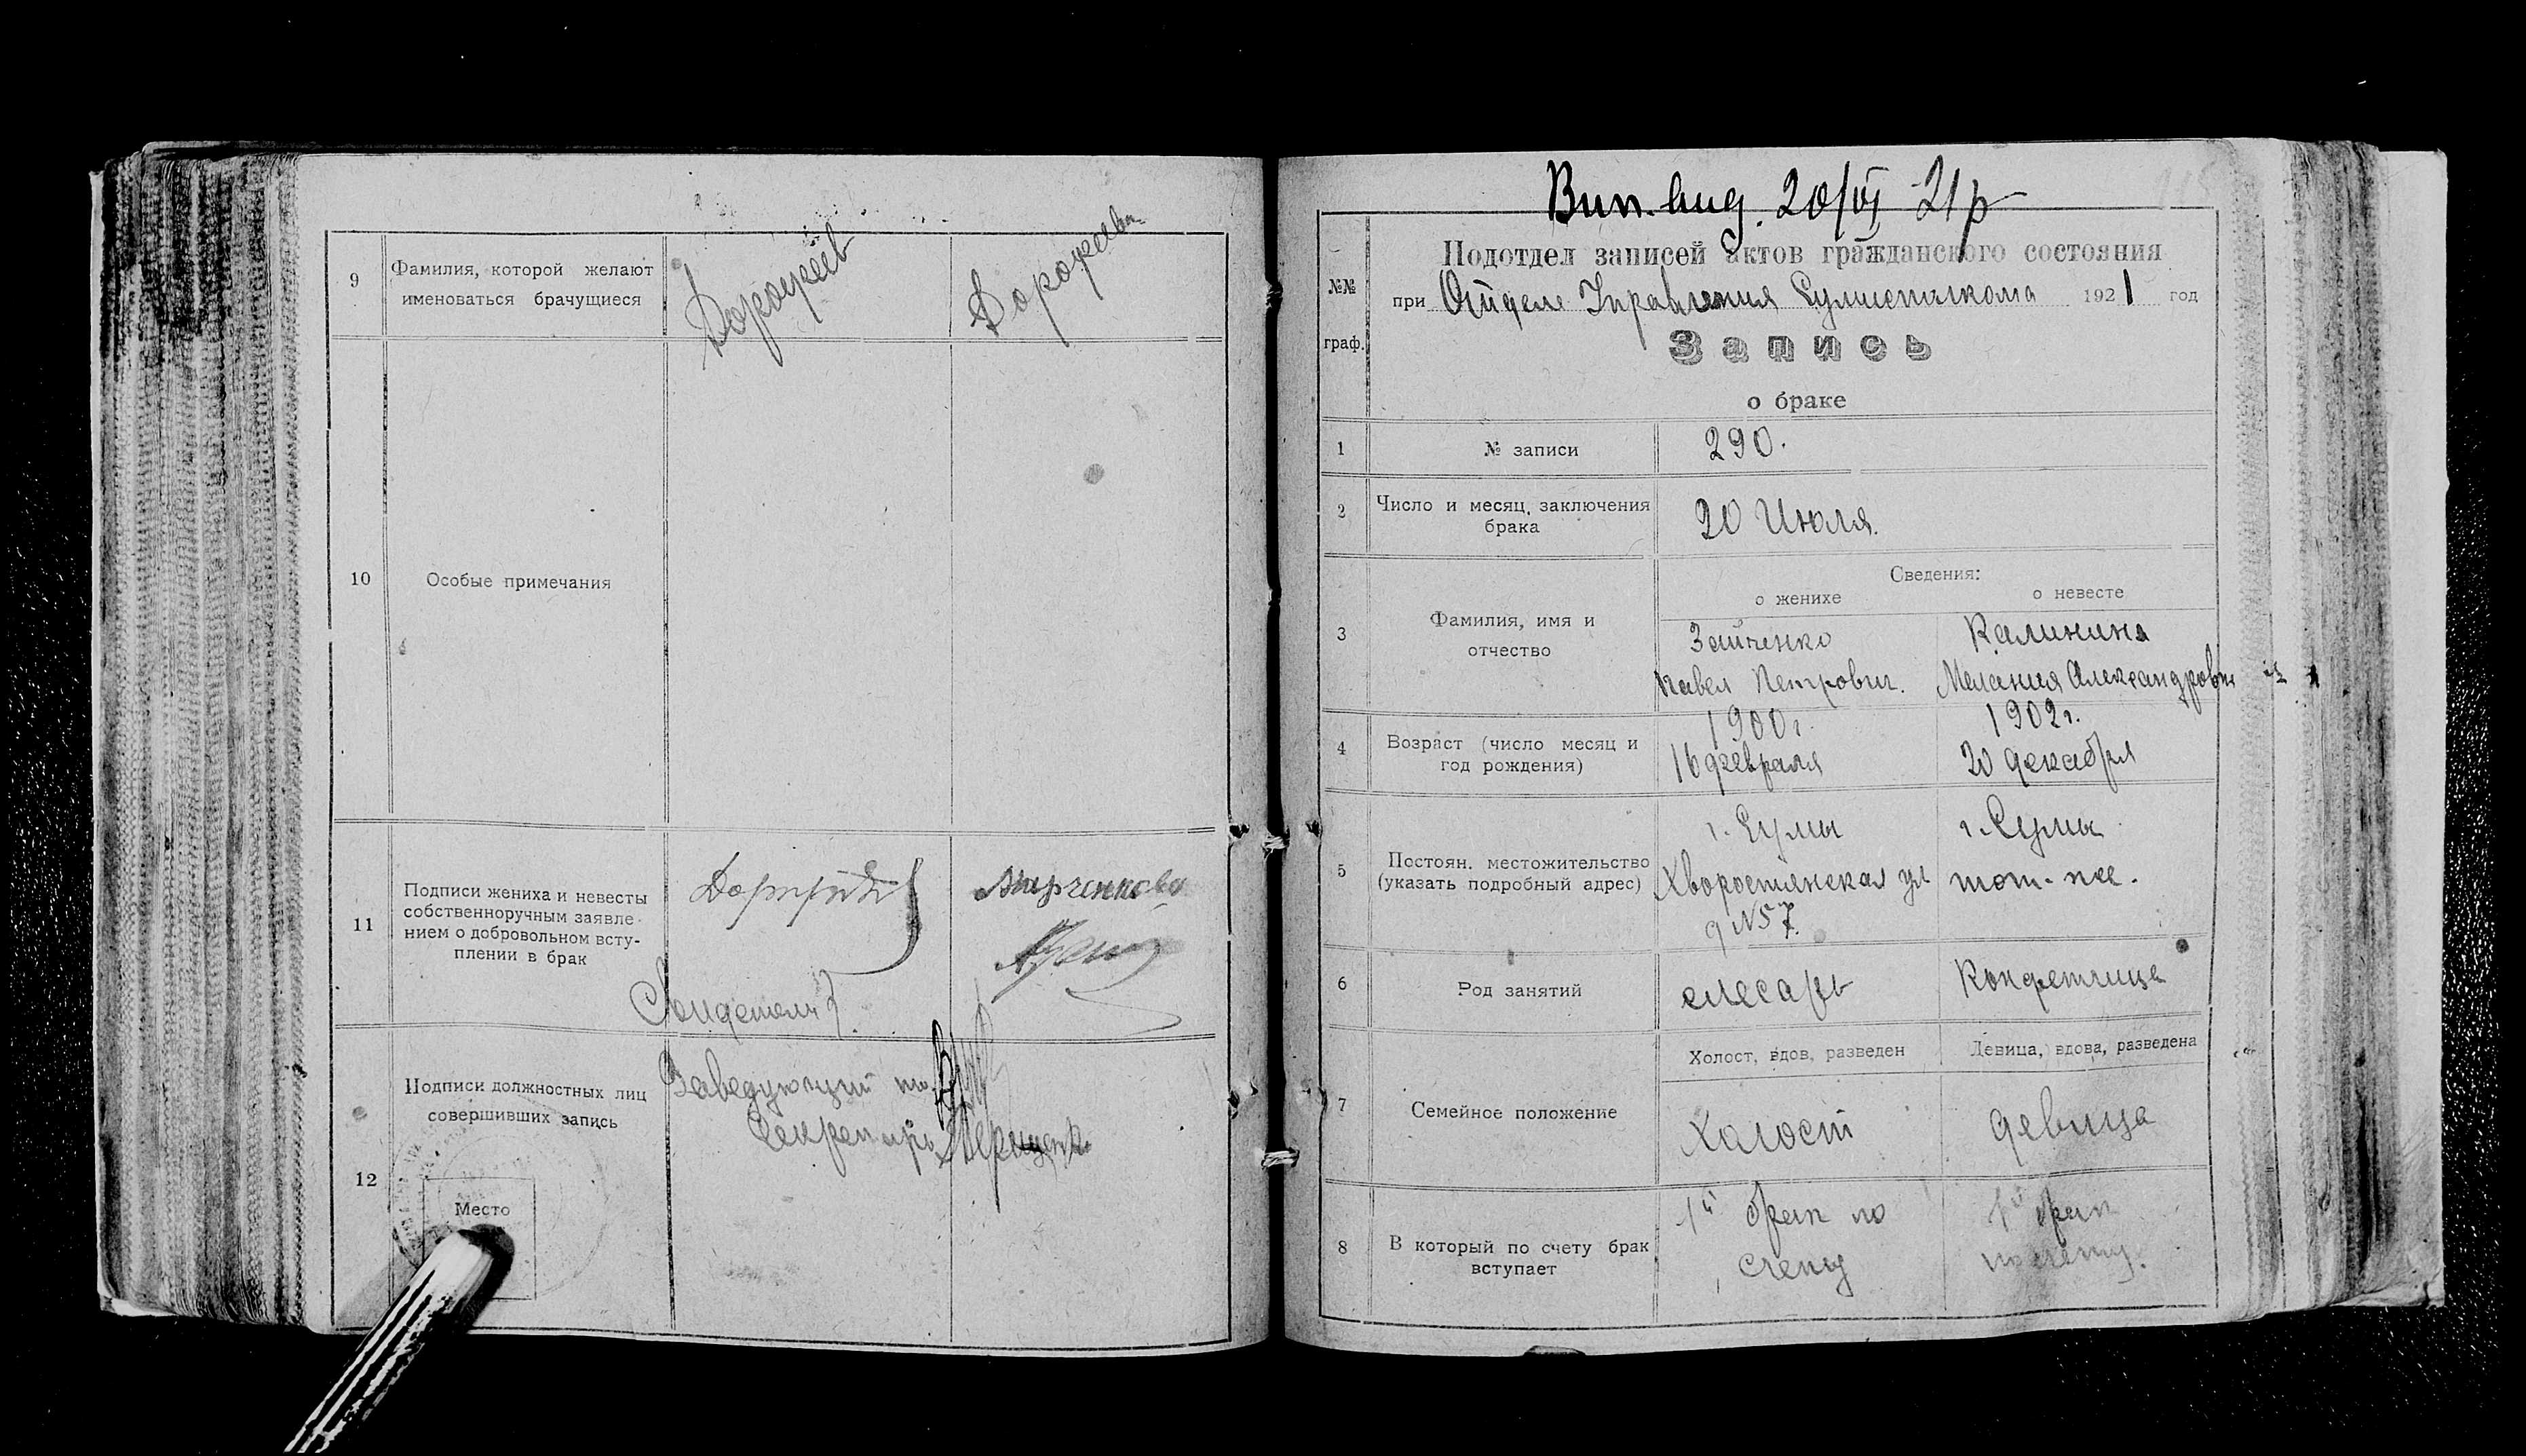 9
Фамилия, которой желают
именоваться брачущиеся
Дорофеев
Дорофеева
10
Особые примечания
11
Подписи жениха и невесты
собственноручным заявле-
нием о добровольном всту-
плении в брак
Свидетели
12
Подписи должностных лиц
совершивших запись
Заведующий
Секретарь
Место
Вып. 20/VII 21 р
№№
граф.
Подотдел записей актов гражданского состояния
при Отделе Управления 1921 год
Запись
о браке
1
№ записи
290.
2
Число и месяц, заключения
брака
20 Июля.
3
Фамилия, имя и
отчество
Сведения:
о женихе
о невесте
Зайченко
Павел Петрович.
Калинина
Мелания Александровна
4
Возраст (число месяц и
год рождения)
1900 г.
16 февраля
1902 г.
20 декабря
5
Постоян. местожительство
(указать подробный адрес)
г. Сумы
Хворостянская ул
д №57.
г. Сумы
там-же.
6
Род занятий
слесарь
Конфетчица
7
Семейное положение
Холост, вдов, разведен
Девица, вдова, разведена
Холост
девица
8
В который по счету брак
вступает
1й брак по
счету
1й брак
по счету.